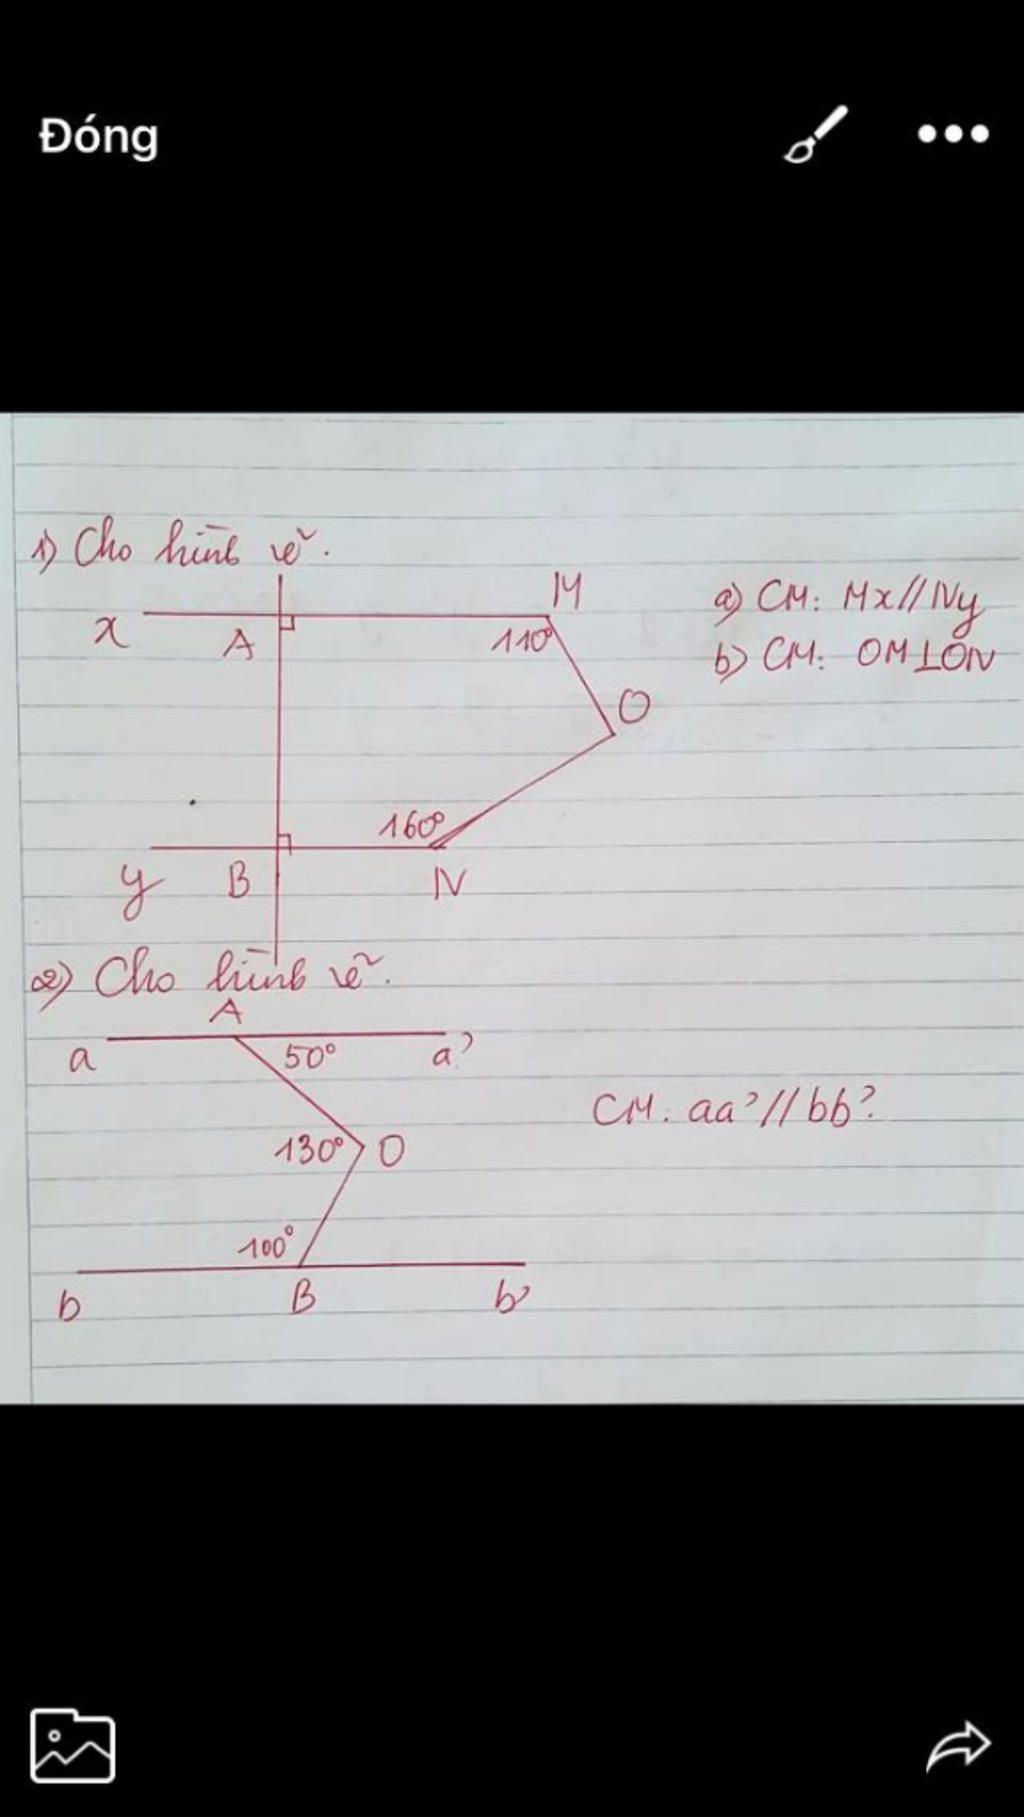 Đóng
1) Cho hình vẽ.
x
A
M
110°
O
160°
y
B
N
a) CM: Mx//Ny
b) CM: OM⊥ON
2) Cho hình vẽ.
A
a
50°
a'
130°
O
100°
b
B
b'
CM: aa'//bb'.